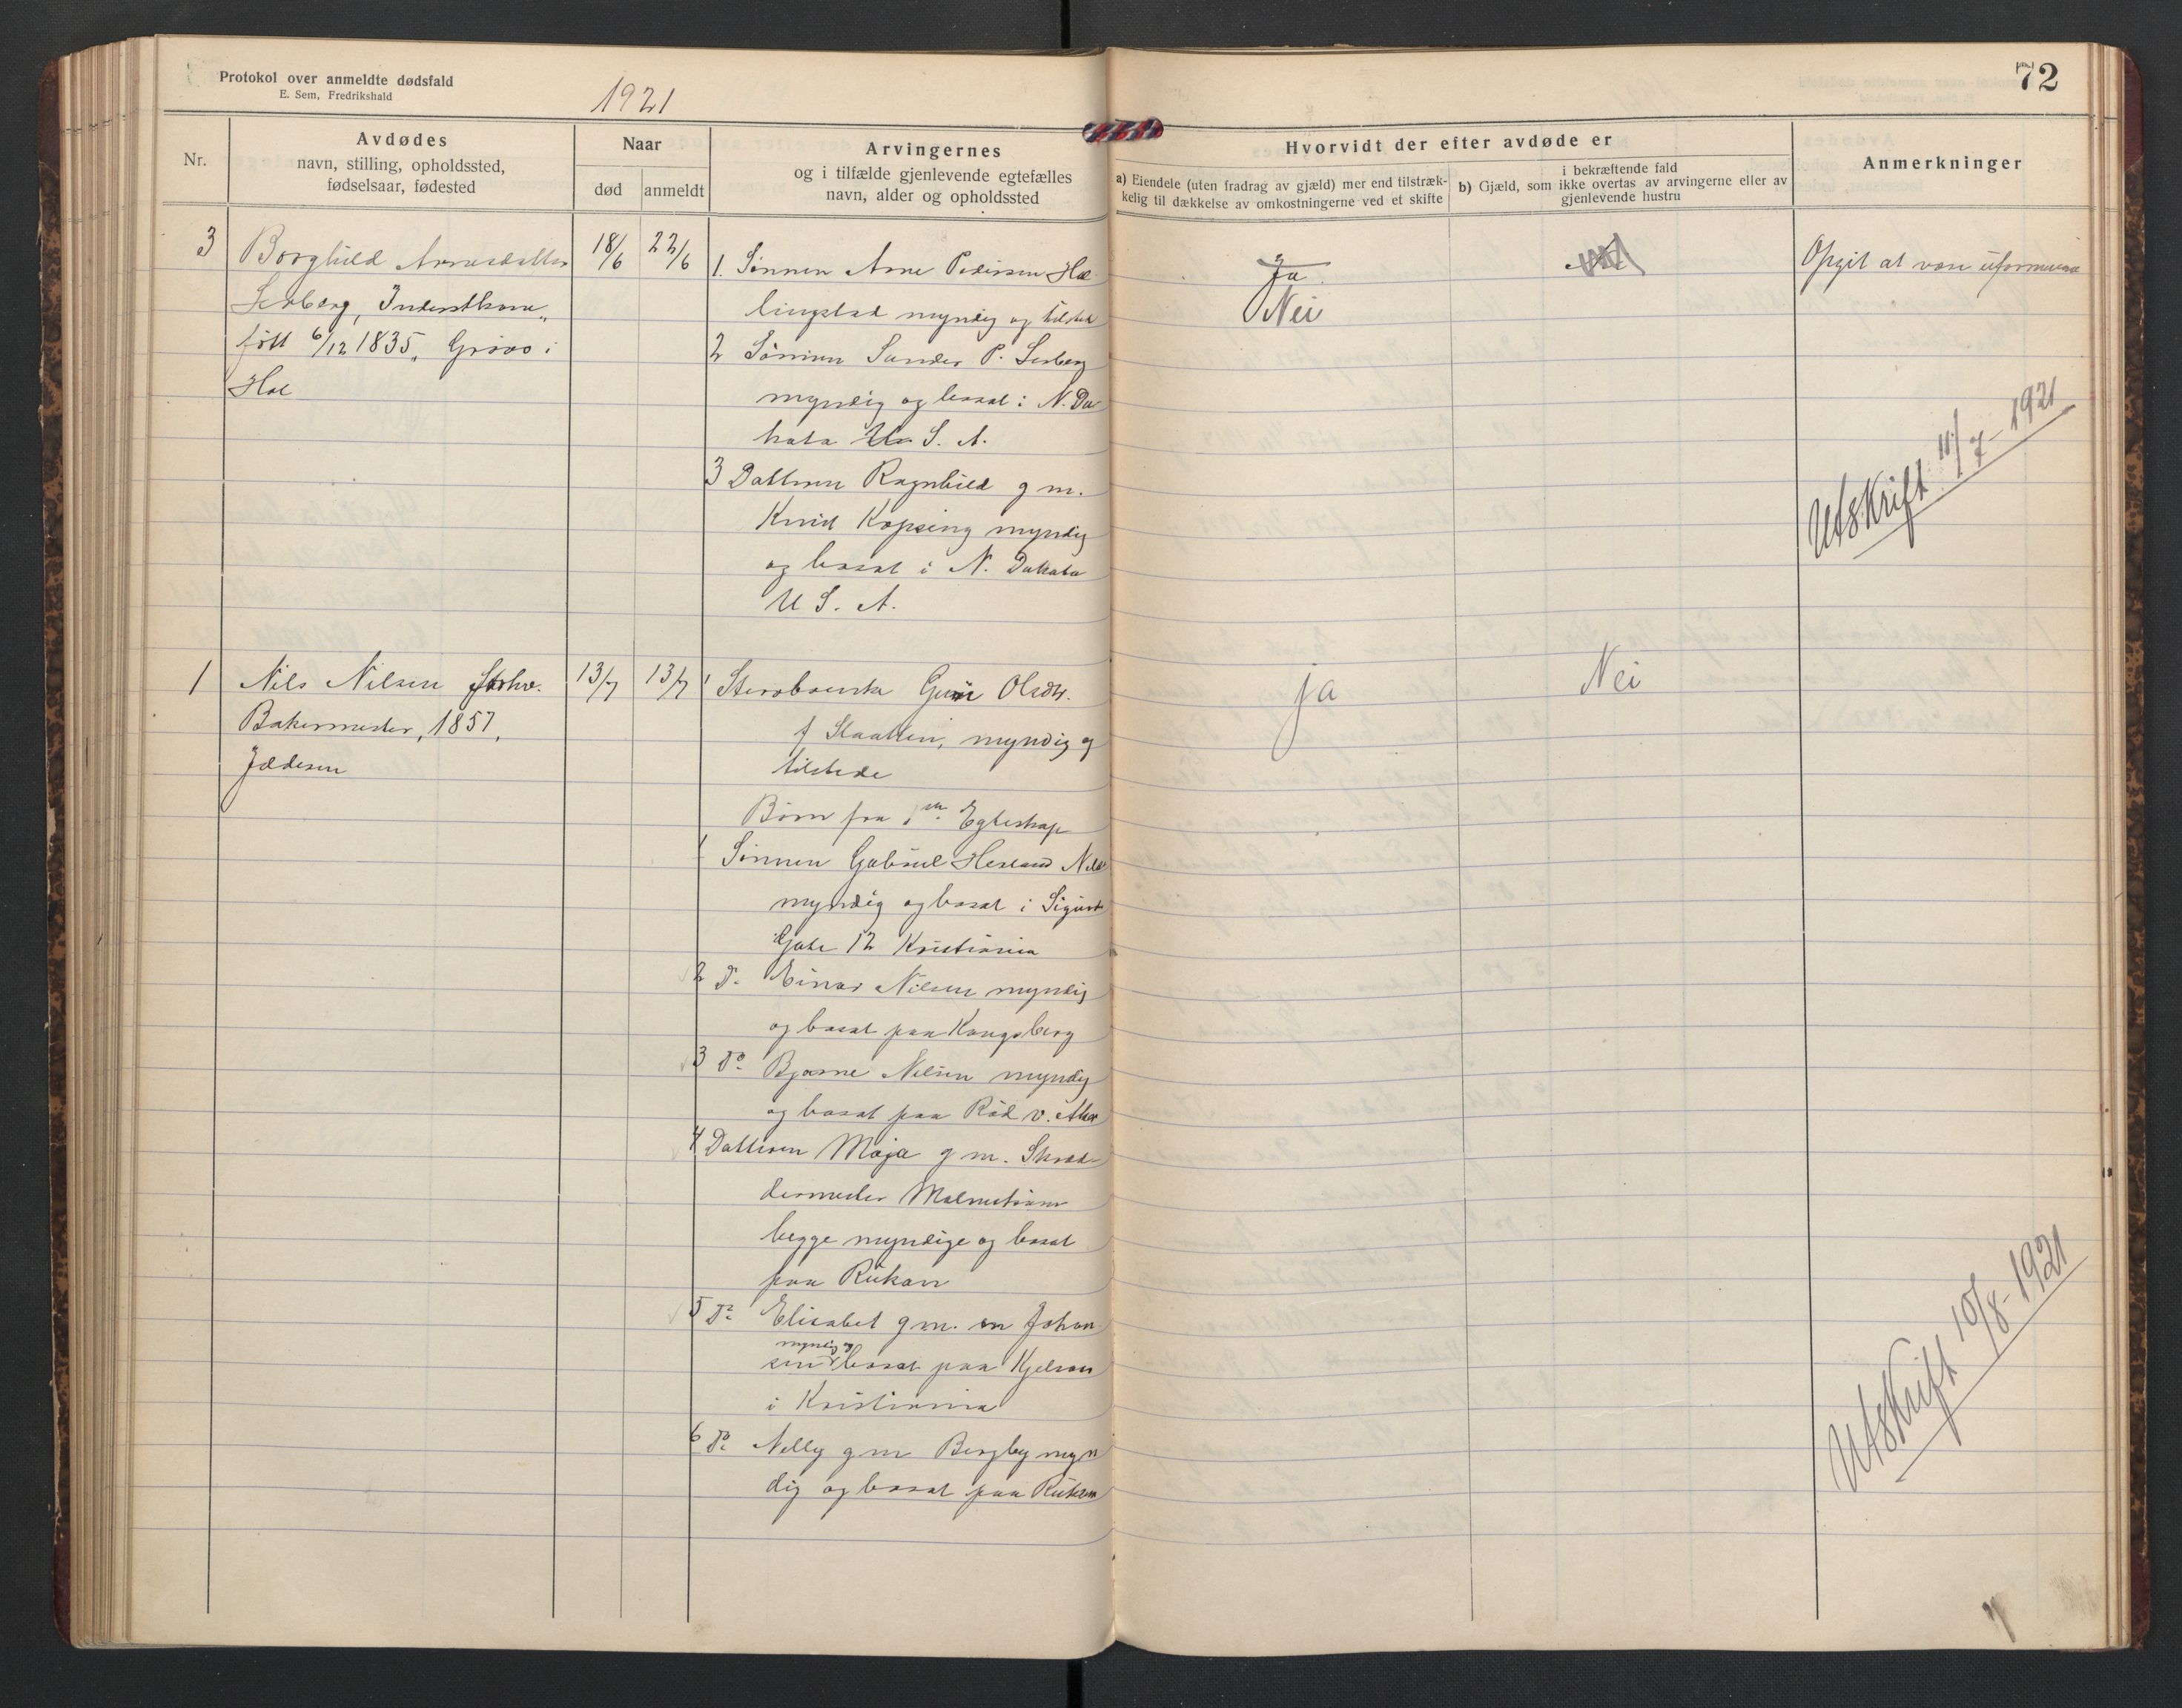 Protokol over anmeldte dødsfald
E. Sem, Fredrikshald
1921
72
Nr.
Avdødes
navn, stilling, opholdssted,
fødselsaar, fødested
Naar
død
anmeldt
Arvingernes
og i tilfælde gjenlevende egtefælles
navn, alder og opholdssted
Hvorvidt der efter avdøde er
a) Eiendele (uten fradrag av gjæld) mer end tilstræk-
kelig til dækkelse av omkostningerne ved et skifte
i bekræftende fald
b) Gjæld, som ikke overtas av arvingerne eller av
gjenlevende hustru
Anmerkninger
3
Borghild Arnesdatter
Serberg,
født 6/12 1835, Grøvo i
Hol
18/6
22/6
1. Sønnen Arne Pedersen Hal-
lingstad myndig og tilsted
2 Sønnen Sander P. Serberg
myndig og bosat i N. Da
kota U. S. A.
3 Datteren Ragnhild g m.
Knut Kopseng myndig
og bosat i N. Dakota
U S. A.
Ja
Nei
Opgit at være uformuende
Utskrift 11/7-1921
1
Nils Nilsen
Bakermester, 1857,
13/7
13/7
Olsdtr.
f Slaatten, myndig og
tilstede
Børn fra 1ste Egteskap
1 Sønnen Gabriel Hesland Nils
myndig og bosat i Sigurds
Gate 12 Kristiania
2 Do Einar Nilsen myndig
og bosat paa Kongsberg
3 Do Bjarne Nilsen myndig
og bosat paa Rød v.
4 Datteren Maja g m. Skræd-
dermester Malmstrøm
begge myndige og bosat
paa Rukan
5 Do Elisabet g m. en Johan
myndig og
sen bosat paa Kjelsaas
i Kristiania
6 Do Nelly g m Bergby myn
dig og bosat paa Rukan
ja
Nei
Utskrift 10/8-1921